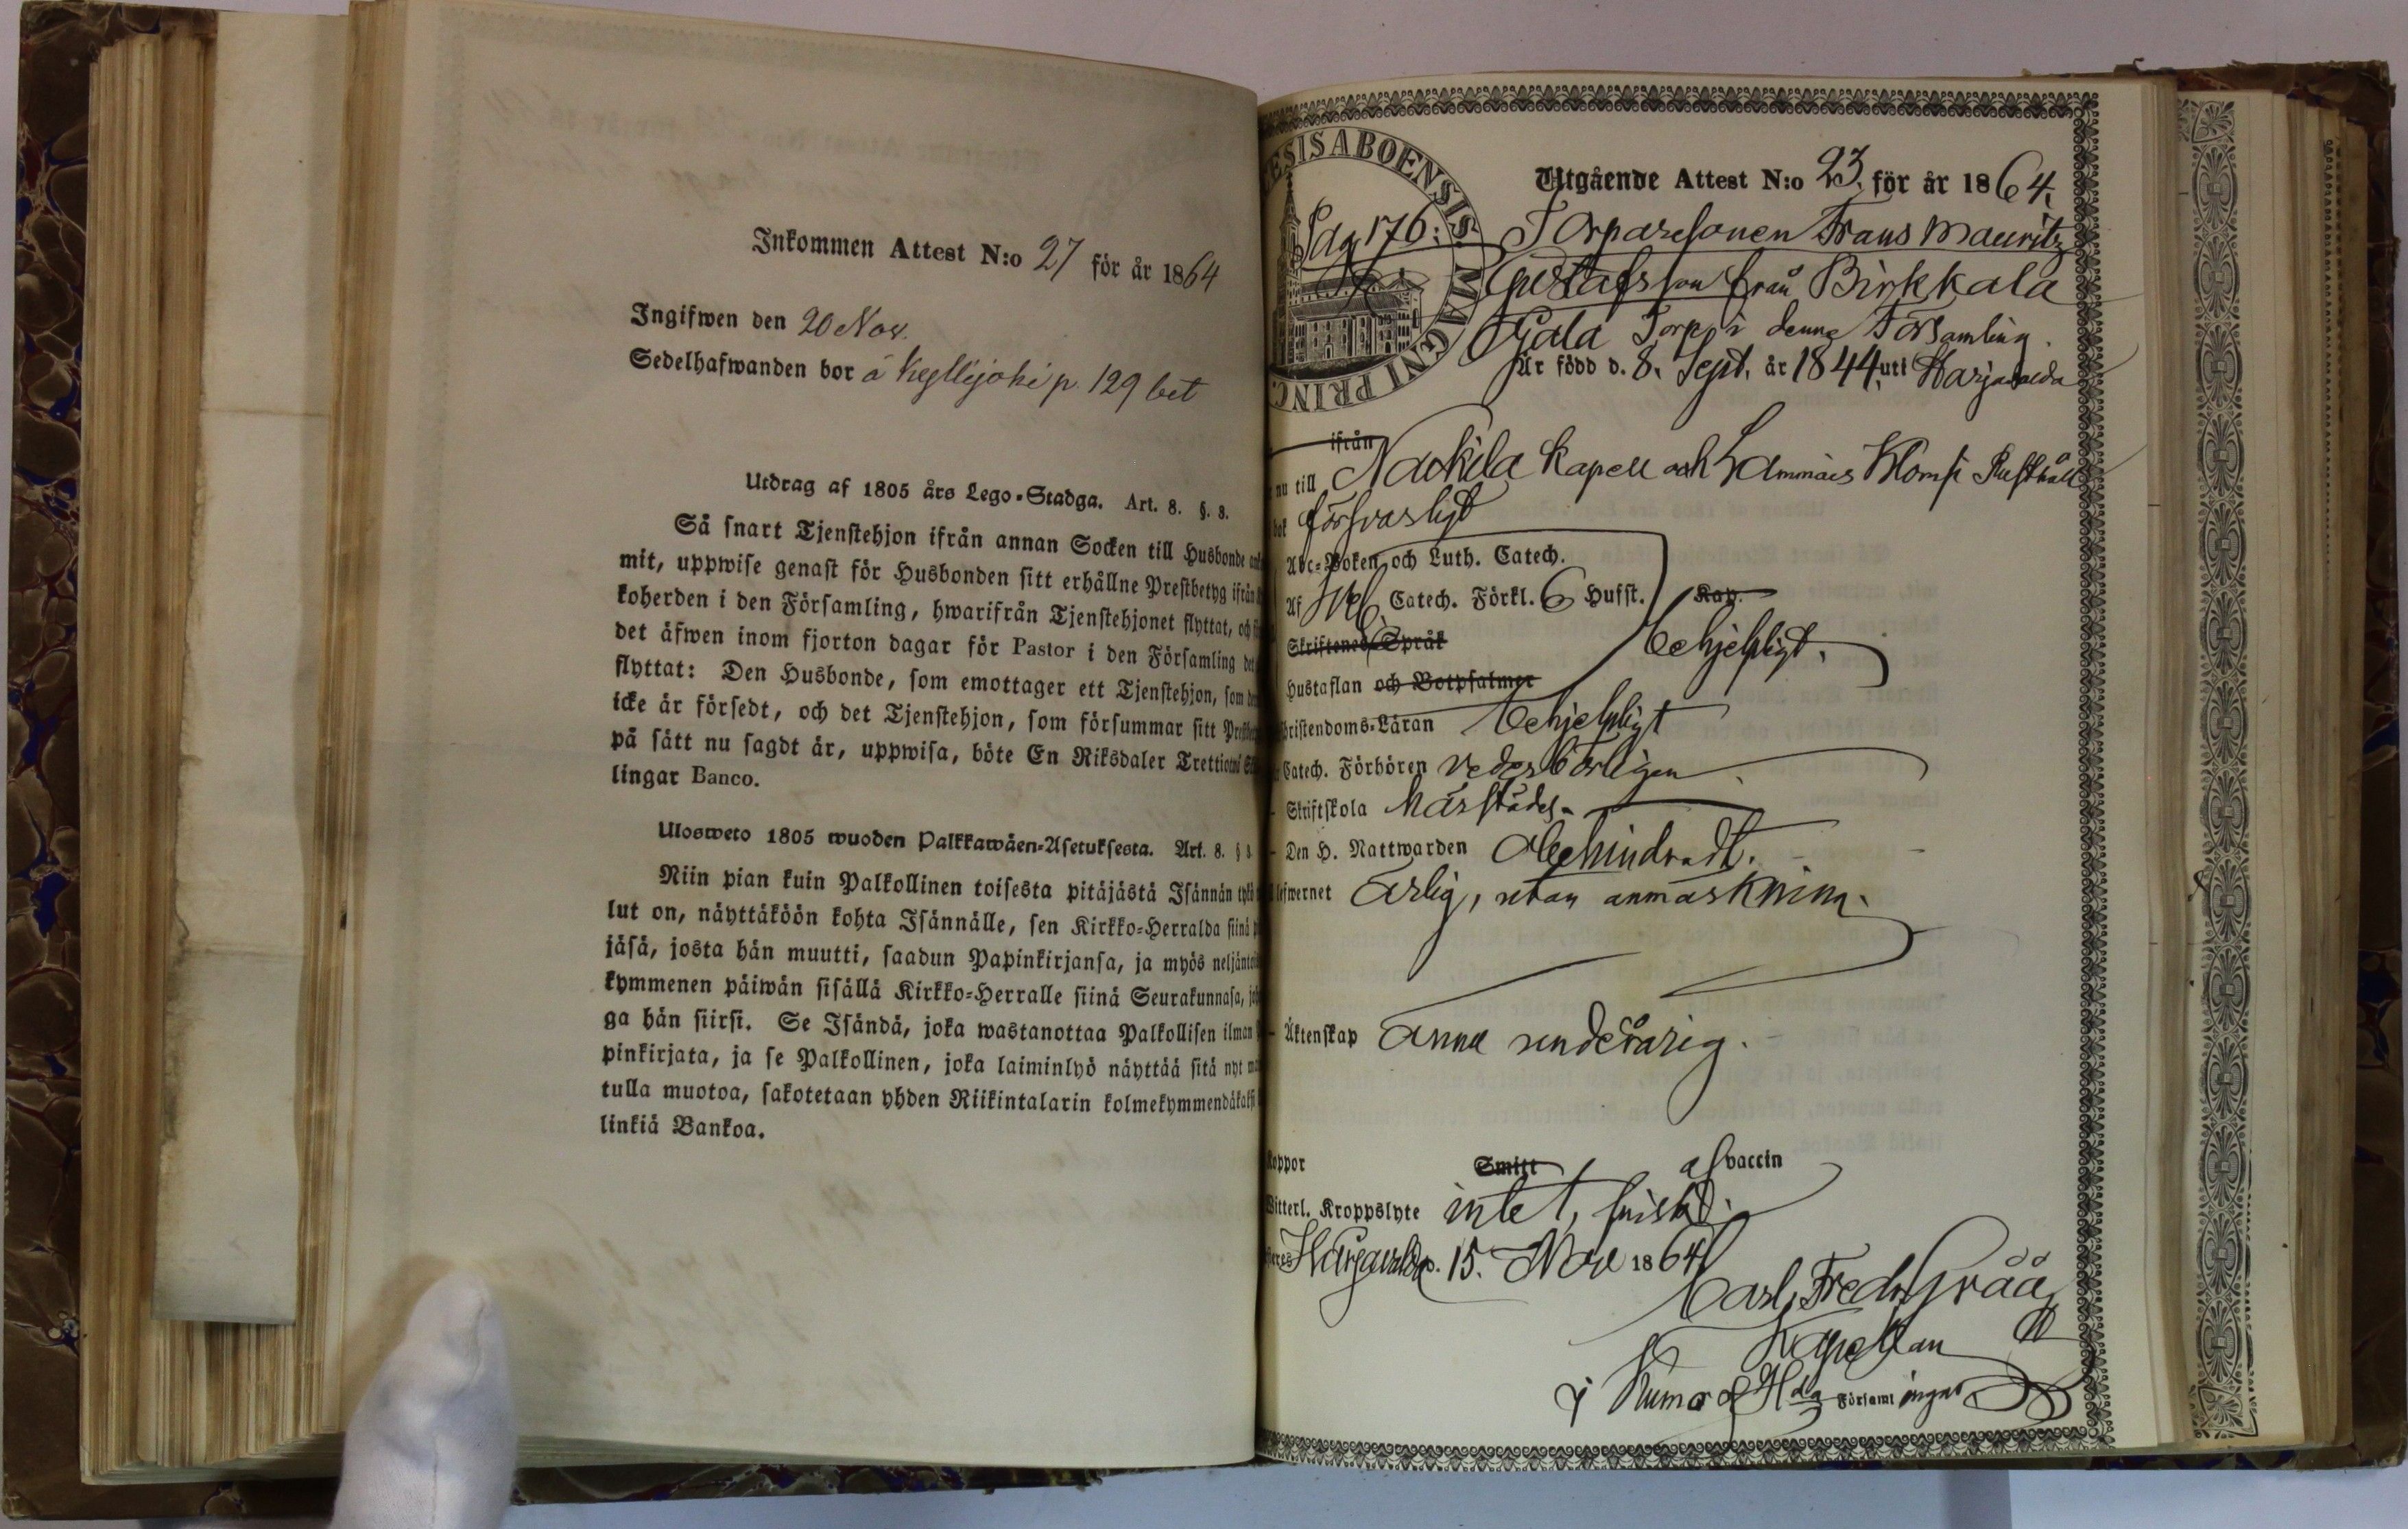 Inkommen Attest N:o 27 för år 1864
Ingifwen den 20 Nov.
Sedelhafwanden bor å Kyllijoki p. 129 bet
Utdrag af 1805 års Lego-Stadga. Art. 8. §. 8.
Så snart Tjenstehjon ifrån annan Socken till Husbonde
mit, uppwise genast för Husbonden sitt erhållne Prestbetyg ifrån
koherden i den Församling, hwarifrån Tjenstehjonet flyttat, och
det äfwen inom fjorton dagar för Pastor i den Församling
flyttat: Den Husbonde, som emottager ett Tjenstehjon, som
icke är försedt, och det Tjenstehjon, som försummar sitt
på sätt nu sagdt är, uppwisa, böte En Riksdaler
lingar Banco.
Ulosweto 1805 wuoden Palkkawäen-Asetuksesta. Art. 8. §
Niin pian kuin Palkollinen toisesta pitäjästä Isännän
lut on, näyttäköön kohta Isännälle, sen Kirkko-Herralda siinä
jäsä, josta hän muutti, saadun Papinkirjansa, ja myös
kymmenen päiwän sisällä Kirkko-Herralle siinä Seurakunnasa,
ga hän siirsi. Se Isändä, joka wastanottaa Palkollisen ilman
pinkirjata, ja se Palkollinen, joka laiminlyö näyttää sitä nyt
tulla muotoa, sakotetaan yhden Riikintalarin
linkiä Bankoa.
ESIS ABOENSIS MAGNI PRINC
Pag 176:
Utgående Attest N:o 23. för år 1864.
Torparesonen Frans Mauritz
Gustafsson från Birkkala
Gala Torp i denne Församling.
Är född d. 8. Sept. år 1844 uti Harjavalda
ifrån
nu till Nackila Kapell och Lammais Klomsi Rusthåll
bok försvarligt
Abc-Boken och Luth. Catech.
Af Catech. Förkl. 6 Husst. Kap.
Skriftenes Språk behjelpligt.
Hustaflan och Botpsalmer
hristendoms-Läran behjelpligt
Catech. Förhören vederbörligen
Skriftskola härstädes.
Den H. Nattwarden obehindradt.
lefwernet ärlig, utan anmärkning.
Äktenskap ännu underårig.
koppor Smitt af vaccin
Witterl. Kroppslyte intet, frisk.
Harjavalda d. 15. Nov 1864
Carl Fredr Gråå
Kapellan
i Kumo o Hda Församl ingar